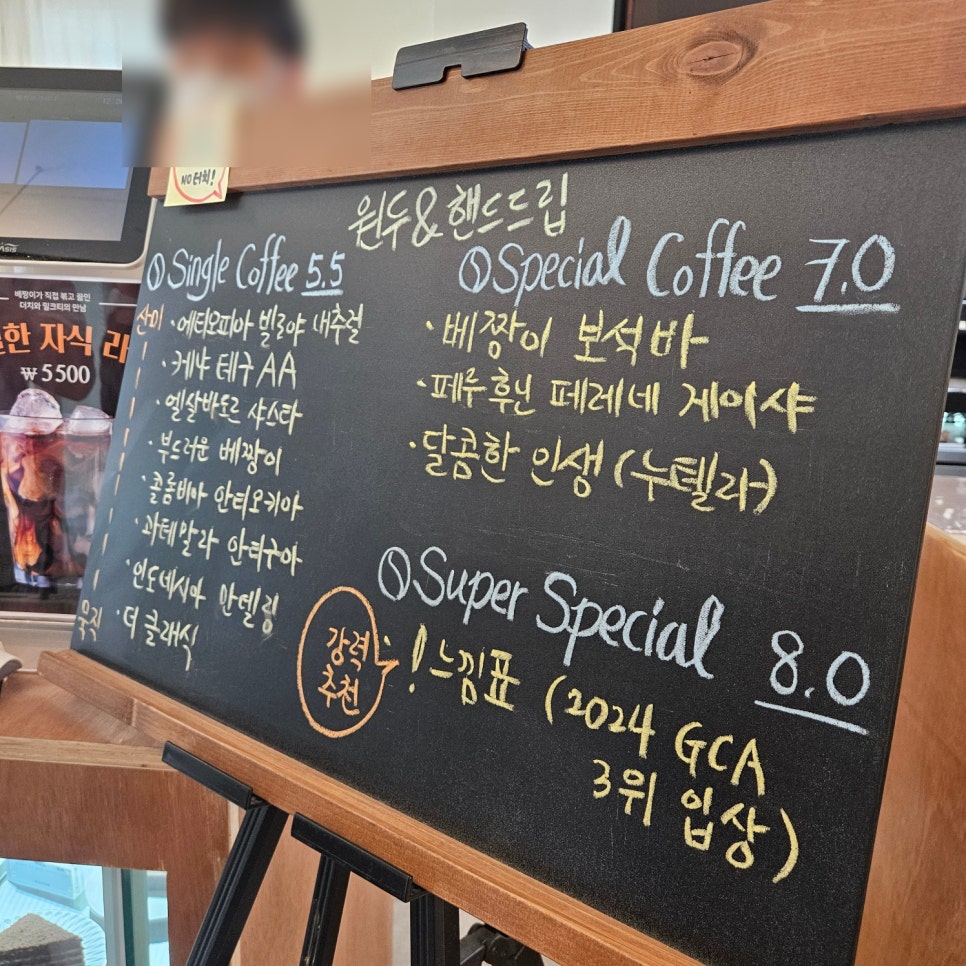 NO터치!
원두&핸드드립
Single Coffee 5.5
산미
· 에티오피아 빌로야 내추럴
· 케냐 테구 AA
· 엘살바도르 샤스타
· 부드러운 베짱이
· 콜롬비아 안티오키아
· 과테말라 안티구아
· 인도네시아 만델링
묵직
· 더 클래식
Special Coffee 7.0
· 베짱이 보석바
· 페루 후닌 페레네 게이샤
· 달콤한 인생 (누텔라)
Super Special 8.0
강력
추천
! 느낌표 (2024 GCA
3위 입상)
베짱이가 직접 볶고 끓인
더치와 밀크티의 만남
한 자식 라
₩5500